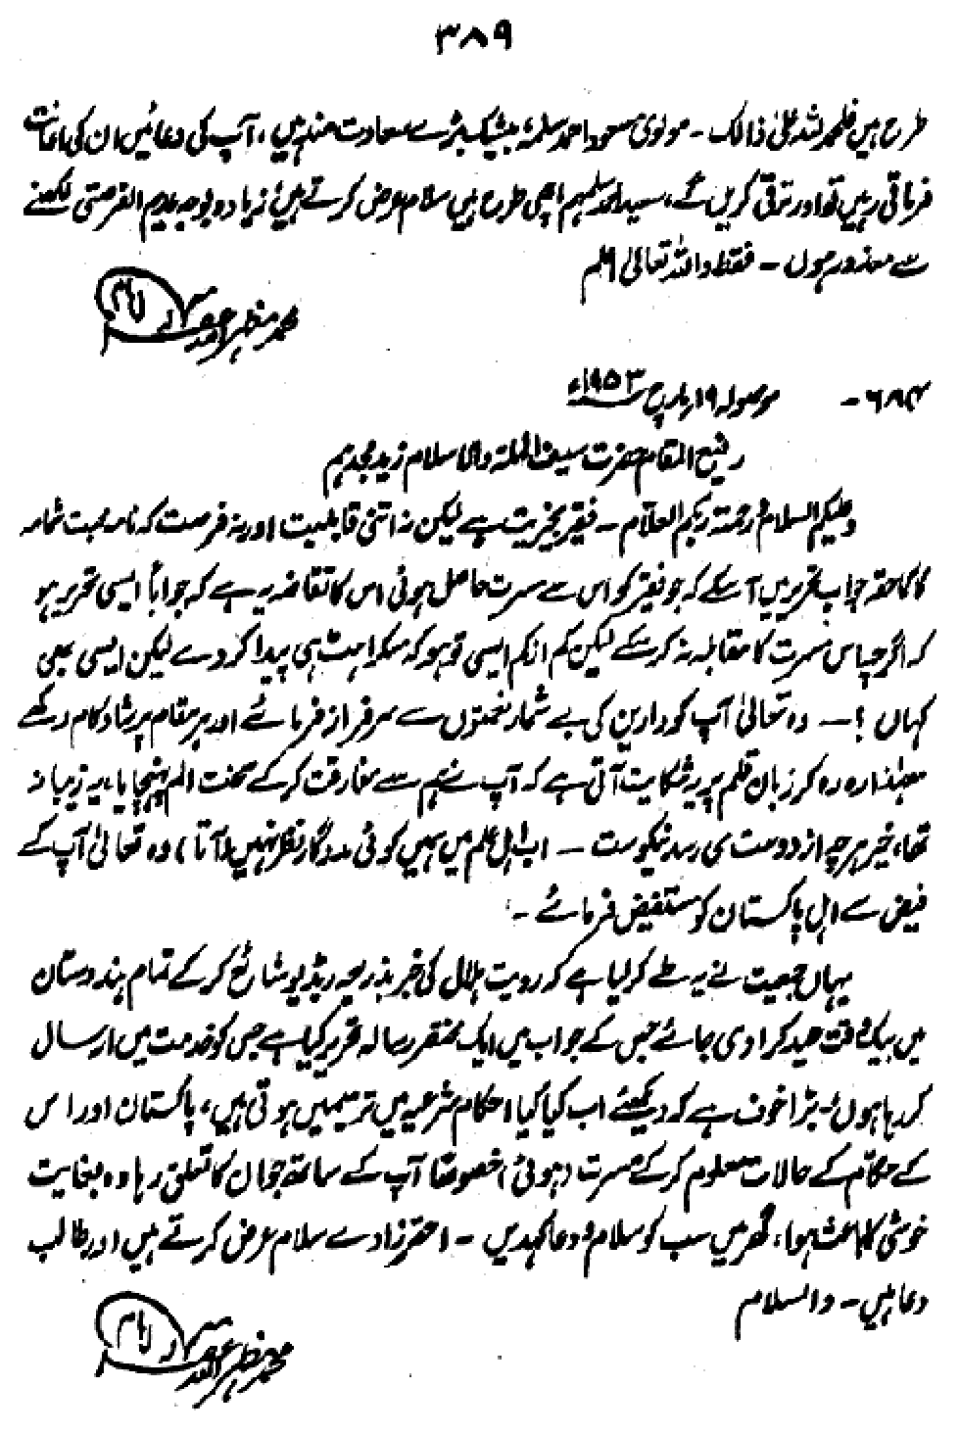 ۳۸۹
طرح ہیں فلحمد للہ علیٰ ذالک۔ مولوی مسعود احمد سلمہٗ بیشک بڑے سعادت مند ہیں، آپ کی دعائیں ان کی اعانت
فرماتی رہیں تو اور ترقی کریں گے، سعید احمد سلمہم اچھی طرح ہیں سلام عرض کرتے ہیں، زیادہ بوجہ عدیم الفرصتی لکھنے
سے معذور ہوں۔ فقط واللہ تعالیٰ اعلم
محمد مظہر اللہ غفرلہ
امام
۶۸۴۔ موصولہ ۱۹ مارچ ۱۹۵۳ء
رفیع المقام حضرت سیف الملۃ والاسلام زید مجدہم
وعلیکم السلام و رحمتہ ربکم العلام۔ فقیر بخیریت ہے لیکن نہ اتنی قابلیت اور نہ فرصت کہ نامہ محبت شمامہ
کا کما حقہٗ جواب تحریر میں آسکے کہ جو فقیر کو اس سے مسرت حاصل ہوئی اس کا تقاضہ یہ ہے کہ جواباً ایسی تحریر ہو
کہ اگرچہ اس مسرت کا مقابلہ نہ کر سکے لیکن کم از کم ایسی تو ہو کہ مسکراہٹ ہی پیدا کر دے لیکن ایسی بھی
کہاں؟ — وہ تعالیٰ آپ کو دارین کی بے شمار نعمتوں سے سرفراز فرمائے اور ہر مقام پر شاد کام رکھے
معہٰذا رہ رہ کر زبان قلم پر یہ شکایت آتی ہے کہ آپ نے ہم سے مفارقت کر کے سخت الم پہنچایا، یہ زیبا نہ
تھا، خیر ہر چہ از دوست می رسد نیکوست — اب اہل علم میں ہمیں کوئی مددگار نظر نہیں (آتا) وہ تعالیٰ آپ کے
فیض سے اہل پاکستان کو مستفیض فرمائے۔
یہاں جمعیت نے یہ طے کر لیا ہے کہ رویت ہلال کی خبر بذریعہ ریڈیو شائع کر کے تمام ہندوستان
میں بیک وقت عید کرا دی جائے جس کے جواب میں ایک مختصر رسالہ تحریر کیا ہے جس کو خدمت میں ارسال
کر رہا ہوں، بڑا خوف ہے کہ دیکھئے اب کیا کیا احکام شرعیہ میں ترمیمیں ہوتی ہیں، پاکستان اور اس
کے حکام کے حالات معلوم کر کے مسرت (ہوئی) خصوصاً آپ کے ساتھ جو ان کا تعلق رہا وہ بغایت
خوشی کا باعث ہوا، گھر میں سب کو سلام و دعا کہدیں۔ احقر زادے سلام عرض کرتے ہیں اور طالب
دعا ہیں۔ والسلام
محمد مظہر اللہ غفرلہ
امام